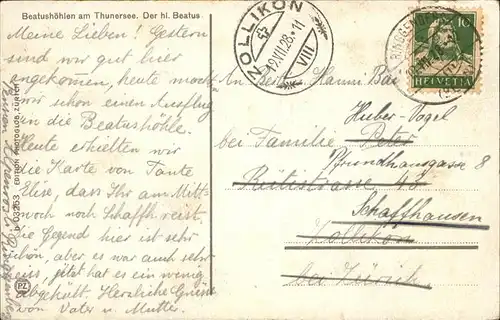 Beatushöhlen am Thunersee. Der hl. Beatus
Meine Lieben! Gestern
sind wir gut hier
angekommen, heute macht
wir schon einen Ausflug
in die Beatushöhle.
Heute erhielten wir
die Karte von Tante
Elise, dass Ihr am Mitt
woch noch Schaffh. reist.
Die Gegend hier ist sehr
schön, aber es war auch sehr
heiss, jetzt hat es ein wenig
abgekühlt. Herzliche Grüsse
von Vater u. Mutter.
EDITION PHOTOGLOB, ZÜRICH
PZ
ZOLLIKON
VIII
HELVETIA
10
An Berteli Hanni
Huber-Vogel
bei Familie Peter
Pfrundhausgasse 8
Rütistrasse 48
Schaffhausen
Zollikon
bei Zürich.